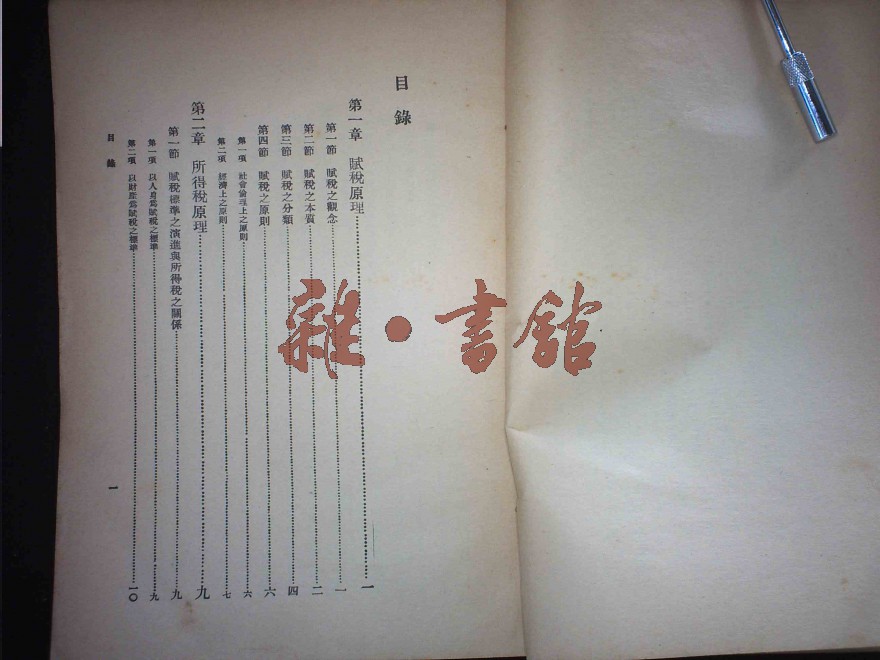 目錄
第一章 賦稅原理……一
第一節 賦稅之觀念……一
第二節 賦稅之本質……二
第三節 賦稅之分類……四
第四節 賦稅之原則……六
第一項 社會倫理上之原則……六
第二項 經濟上之原則……七
第二章 所得稅原理……九
第一節 賦稅標準之演進與所得稅之關係……九
第一項 以人身爲賦稅之標準……九
第二項 以財產爲賦稅之標準……一〇
目錄
一
雜·書館